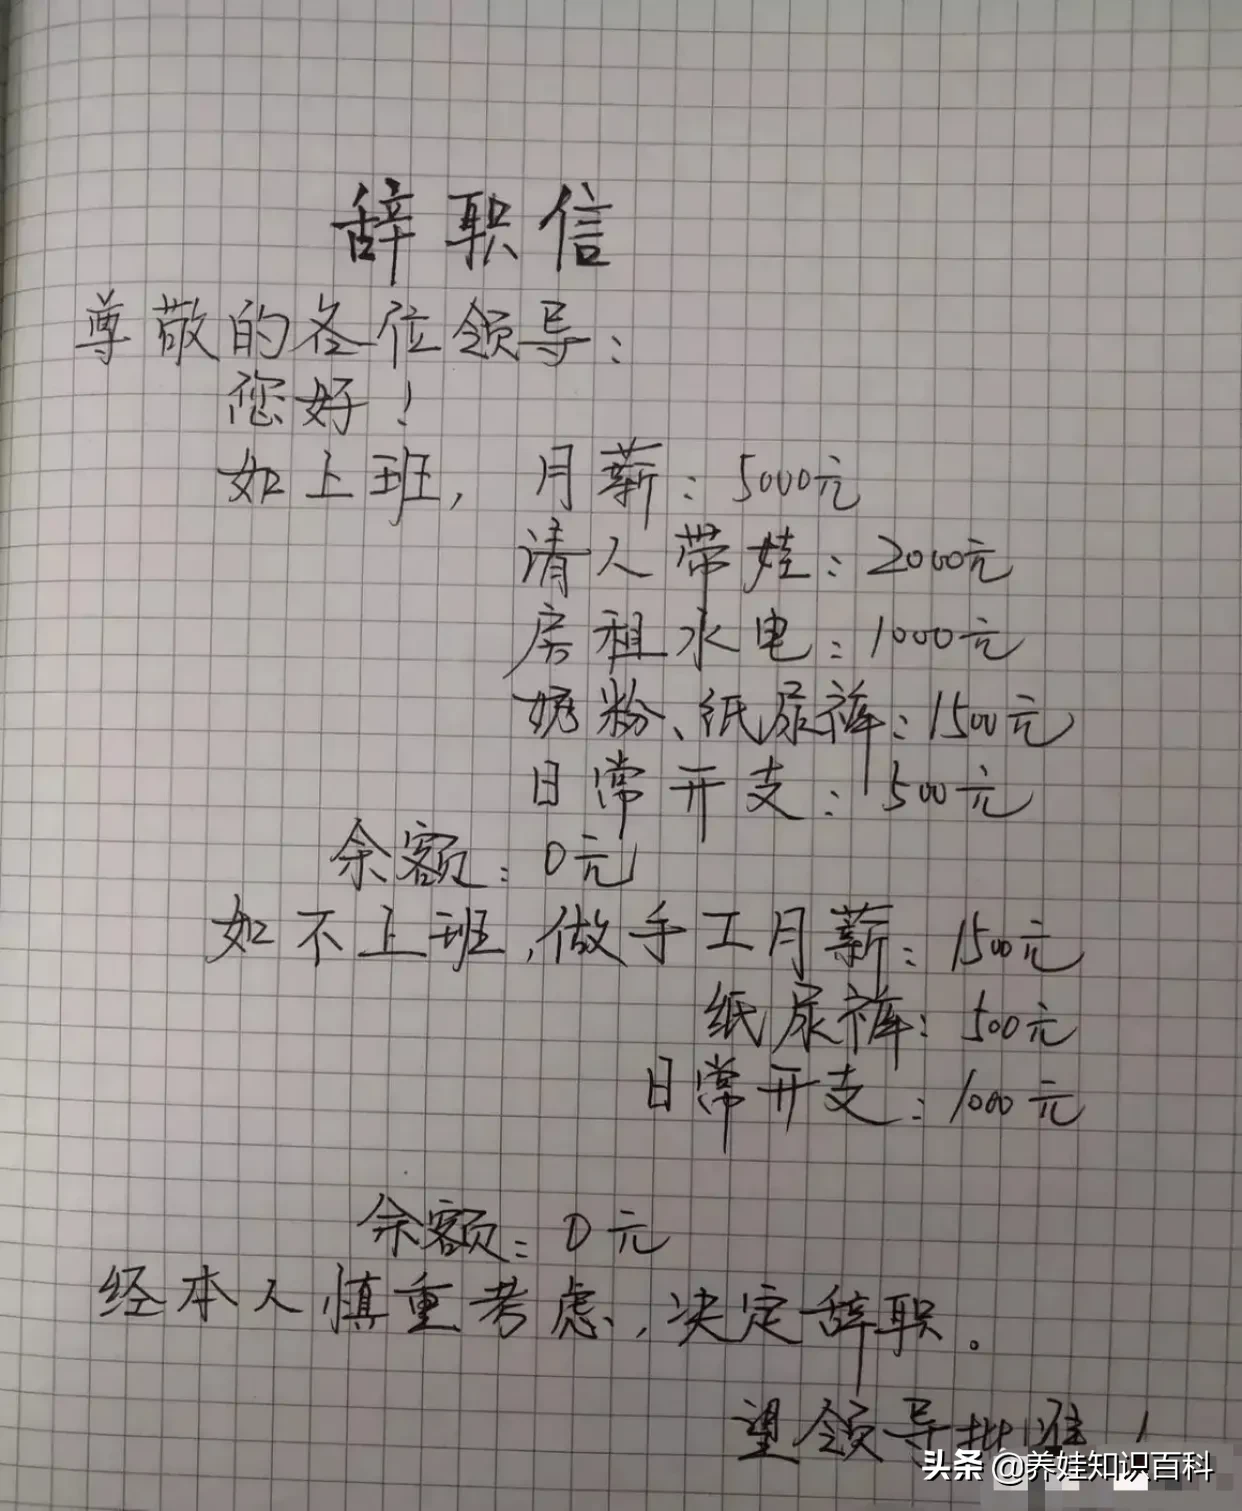 辞职信
尊敬的各位领导：
您好！
如上班，月薪：5000元
请人带娃：2000元
房租水电：1000元
奶粉、纸尿裤：1500元
日常开支：500元
余额：0元
如不上班，做手工月薪：1500元
纸尿裤：500元
日常开支：1000元
余额：0元
经本人慎重考虑，决定辞职。
望领导批准！
头条 @养娃知识百科